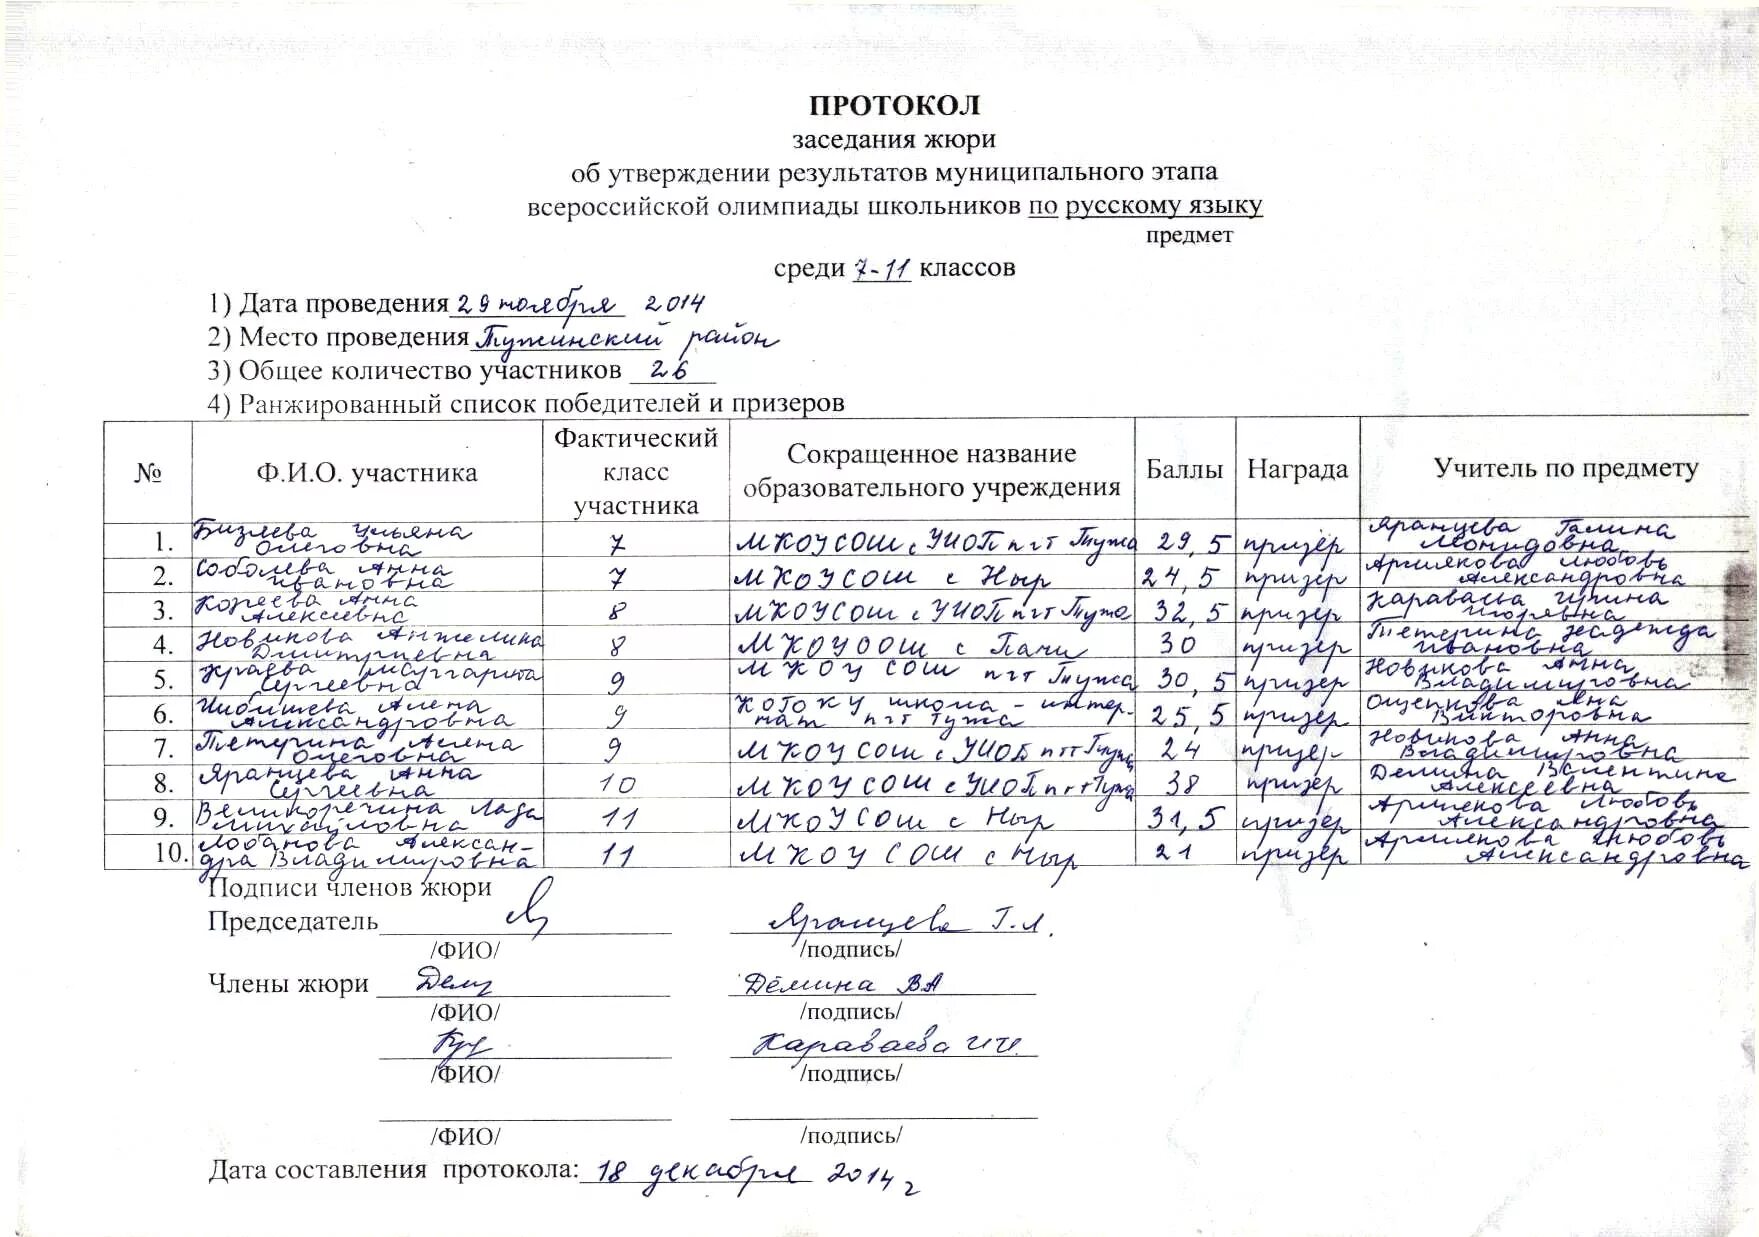 ПРОТОКОЛ
заседания жюри
об утверждении результатов муниципального этапа
всероссийской олимпиады школьников по русскому языку
предмет
среди 7-11 классов
1) Дата проведения 29 ноября 2014
2) Место проведения Тужинский район
3) Общее количество участников 26
4) Ранжированный список победителей и призеров
№ Ф.И.О. участника Фактический класс участника Сокращенное название образовательного учреждения Баллы Награда Учитель по предмету
1. Бизяева Ульяна Олеговна 7 МКОУ СОШ с УИОП пгт Тужа 29,5 призёр Яранцева Галина Леонидовна
2. Соболева Анна Ивановна 7 МКОУ СОШ с Ныр 24,5 призёр Любовь Александровна
3. Анна Алексеевна 8 МКОУ СОШ с УИОП пгт Тужа 32,5 призёр Караваева Ирина Игоревна
4. Новикова Ангелина Дмитриевна 8 МКОУ ООШ с Пачи 30 призёр Тетерина Надежда Ивановна
5. Краева Маргарита Сергеевна 9 МКОУ СОШ пгт Тужа 30,5 призёр Новикова Анна Владимировна
6. Алена Александровна 9 КОГОКУ школа - интернат пгт Тужа 25,5 призёр Ощепкова Яна Викторовна
7. Тетерина Олеговна 9 МКОУ СОШ с УИОП пгт Тужа 24 призёр Новикова Анна Владимировна
8. Яранцева Анна Сергеевна 10 МКОУ СОШ с УИОП пгт Тужа 38 призёр Дёмина Валентина Алексеевна
9. Великоречина Лада Михайловна 11 МКОУ СОШ с Ныр 31,5 призёр Любовь Александровна
10. Лобанова Александра Владимировна 11 МКОУ СОШ с Ныр 21 призёр Любовь Александровна
Подписи членов жюри
Председатель Яранцева Г.Л.
/ФИО/ /подпись/
Члены жюри Дёмина ВА
/ФИО/ /подпись/
Караваева И.И.
/ФИО/ /подпись/
/ФИО/ /подпись/
Дата составления протокола: 18 декабря 2014 г